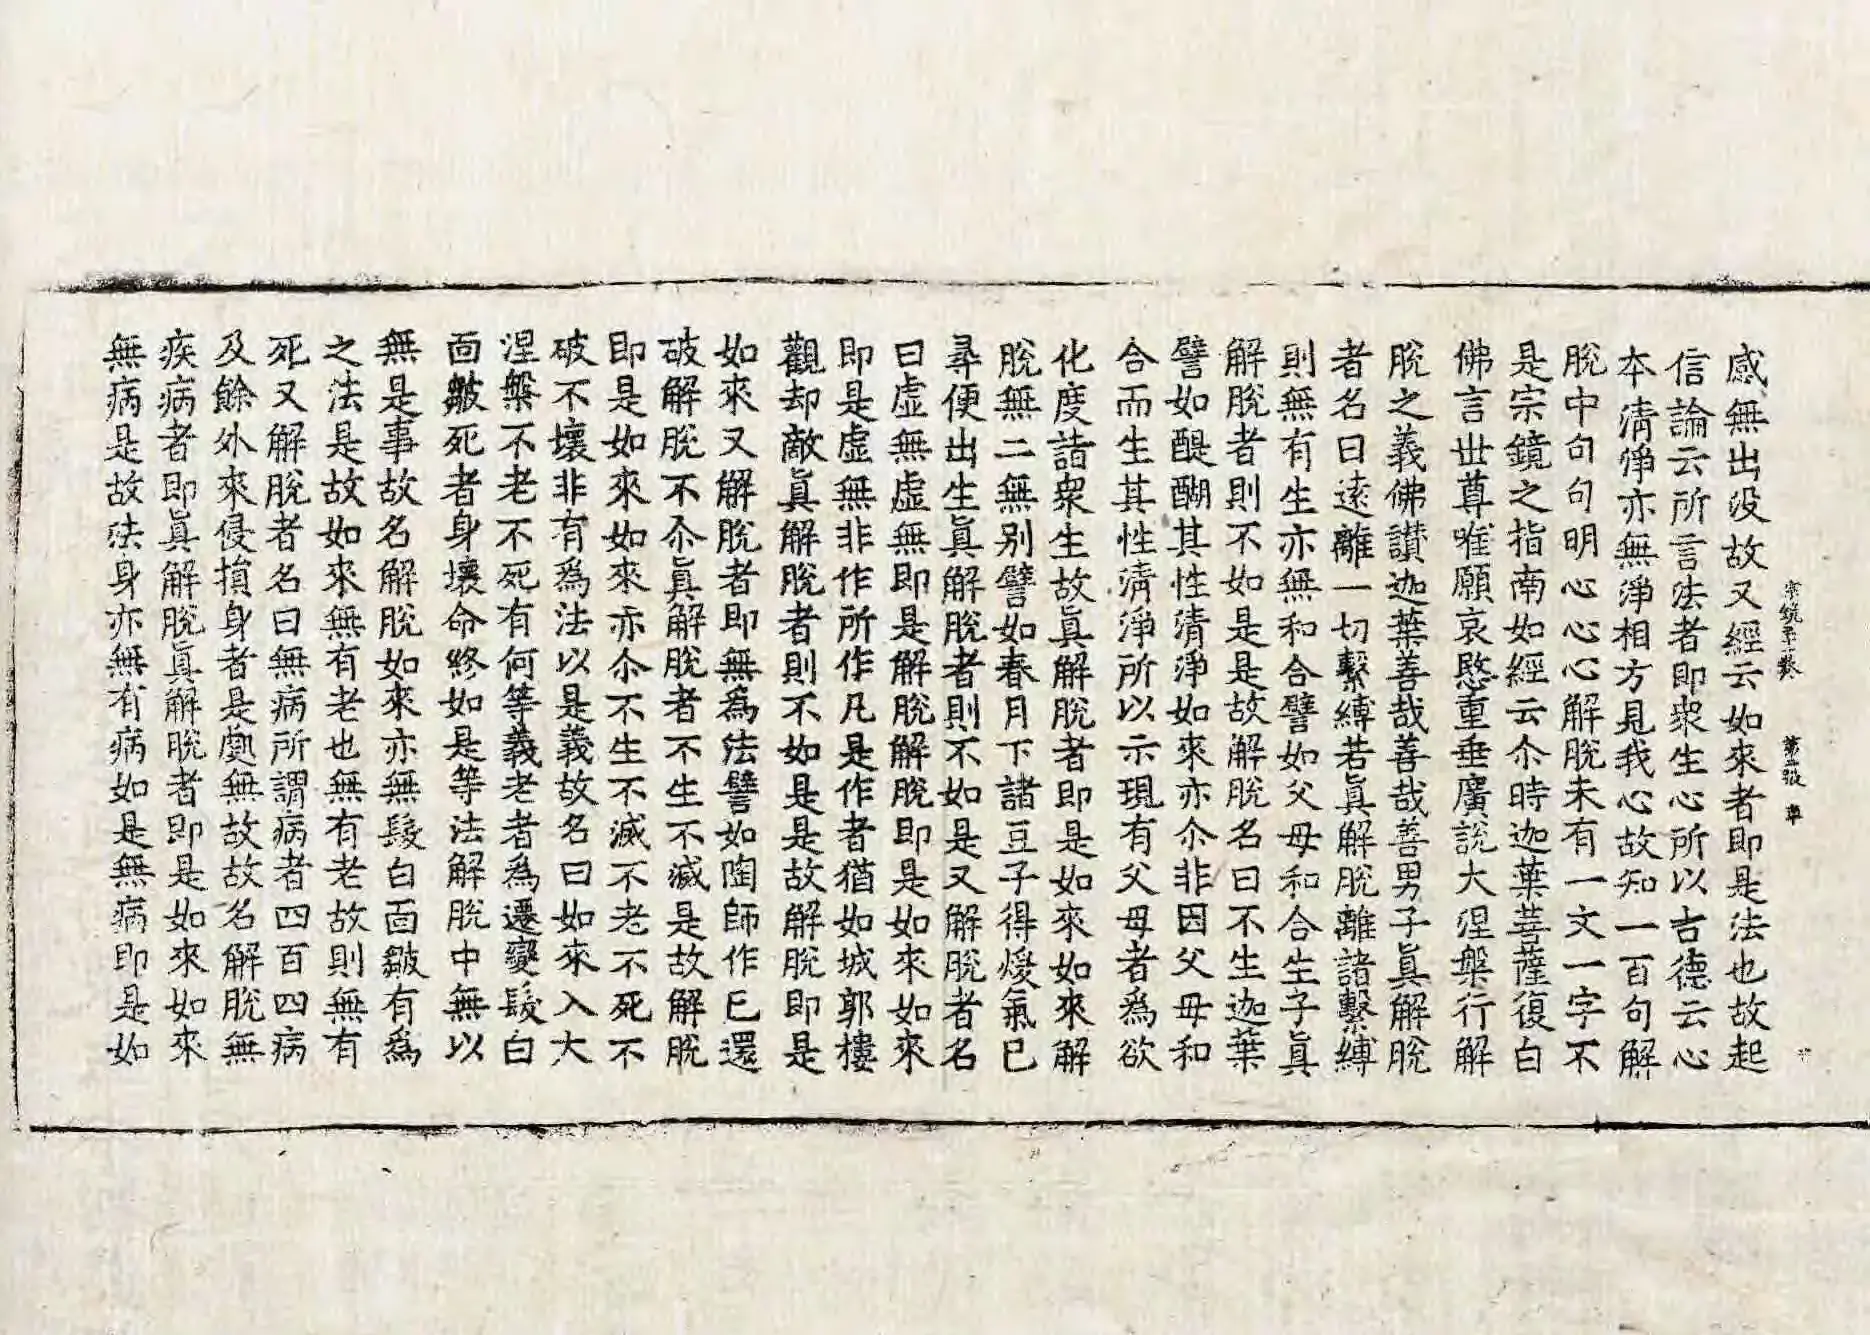 宗鏡
感無出没故又經云如來者即是法也故起
信論云所言法者即衆生心所以古德云心
本清淨亦無淨相方見我心故知一百句解
脫中句句明心心心解脫未有一文一字不
是宗鏡之指南如經云尒時迦葉菩薩復白
佛言世尊唯願哀愍重垂廣說大涅槃行解
脫之義佛讃迦葉善哉善哉善男子眞解脫
者名曰遠離一切繫縛若眞解脫離諸繫縛
則無有生亦無和合譬如父母和合生子眞
解脫者則不如是是故解脫名曰不生迦葉
譬如醍醐其性清淨如來亦尒非因父母和
合而生其性清淨所以示現有父母者爲欲
化度諸衆生故眞解脫者即是如來如來解
脫無二無別譬如春月下諸豆子得煖氣已
尋便出生眞解脫者則不如是又解脫者名
曰虛無虛無即是解脫解脫即是如來如來
即是虛無非作所作凡是作者猶如城郭樓
觀却敵眞解脫者則不如是是故解脫即是
如來又解脫者即無爲法譬如陶師作已還
破解脫不尒眞解脫者不生不滅是故解脫
即是如來如來亦尒不生不滅不老不死不
破不壞非有爲法以是義故名曰如來入大
涅槃不老不死有何等義老者爲遷變髮白
面皺死者身壞命終如是等法解脫中無以
無是事故名解脫如來亦無髮白面皺有爲
之法是故如來無有老也無有老故則無有
死又解脫者名曰無病所謂病者四百四病
及餘外來侵損身者是處無故故名解脫無
疾病者即眞解脫眞解脫者即是如來如來
無病是故法身亦無有病如是無病即是如